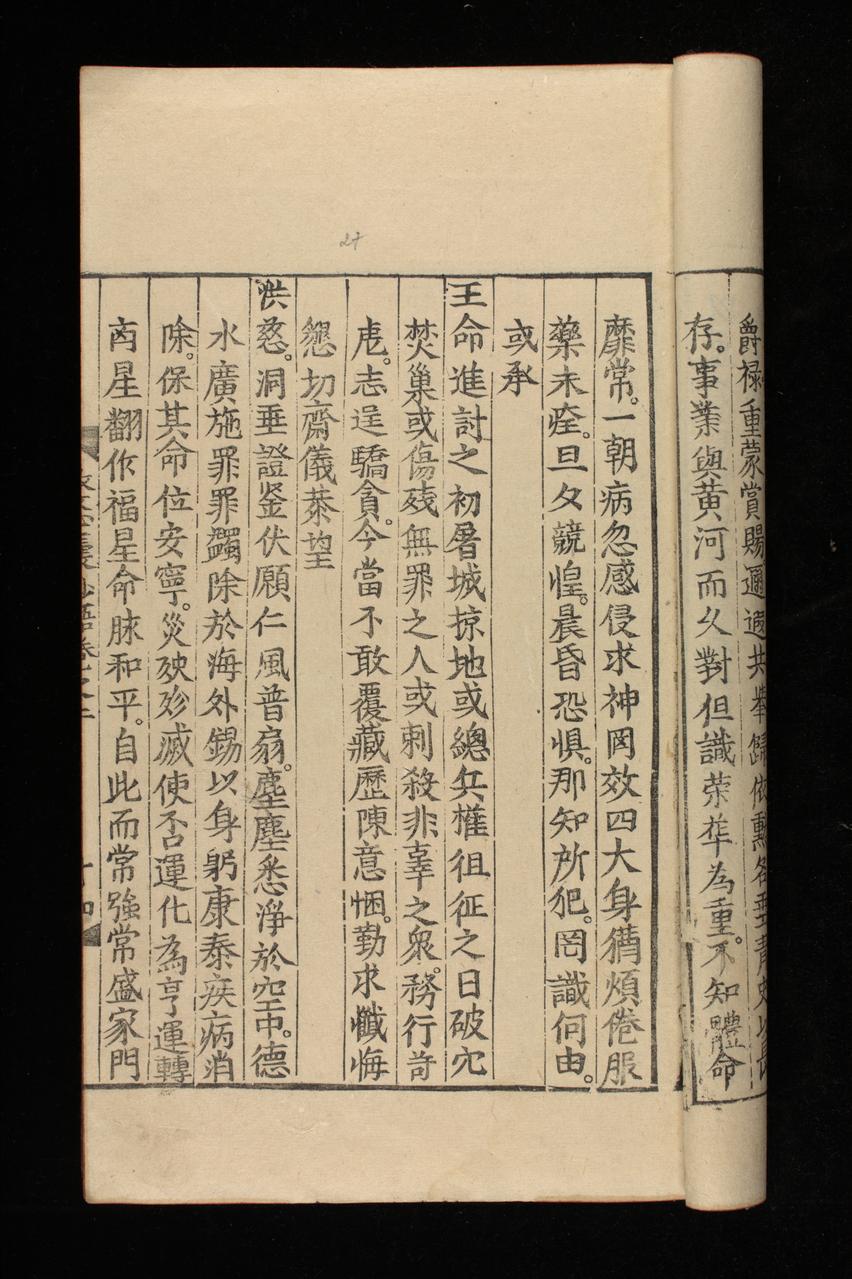 爵祿重蒙賞賜邇遐共舉歸依勲名垂青史以長
存。事業與黃河而久對但識榮華為重。不知體命
靡常。一朝病忽感侵求神罔效四大身猶煩倦服
藥未痊。旦夕兢惶。晨昏恐惧。那知所犯。罔識何由。
或承
王命進討之初屠城掠地或總兵權徂征之日破穴
焚巢或傷殘無罪之人或刺殺非辜之衆。務行苛
虐。志逞驕貪。今當不敢覆藏歷陳意悃。勤求懺悔
懇切齋儀恭望
洪慈。洞垂證鉴伏願仁風普扇。塵塵悉淨於空中。德
水廣施罪罪蠲除於海外錫以身躬康泰疾病消
除。保其命位安寧。災殃殄滅使否運化為亨運轉
㐫星翻作福星命脉和平。自此而常強常盛家門
十四
24